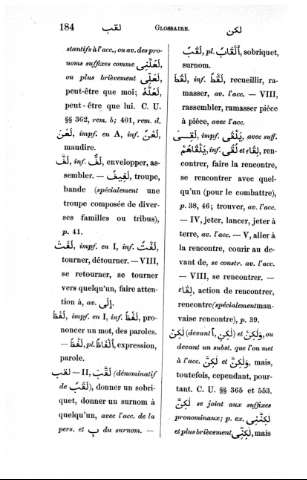 184 لعب GLOSSAIRE. لكن
stantifs à l'acc., ou av. des pro-
noms suffixes comme لَعَلَّنِي
ou plus brièvement لَعَلِّي,
peut-être que moi; لَعَلَّهُ
peut-être que lui. C. U.
§§ 362, rem. b; 401, rem. d.
لَعَنَ, impf. en A, inf. لَعْنٌ,
maudire.
لَفَّ, inf. لَفٌّ, envelopper, as-
sembler. — لَفِيفٌ, troupe,
bande (spécialement une
troupe composée de diver-
ses familles ou tribus),
p. 41.
لَفَتَ, impf. en I, inf. لَفْتٌ,
tourner, détourner. — VIII,
se retourner, se tourner
vers quelqu'un, faire atten-
tion à, av. إِلَى.
لَفَظَ, impf. en I, inf. لَفْظٌ, pro-
noncer un mot, des paroles.
— لَفْظٌ, pl. أَلْفَاظٌ, expression,
parole.
لقب — II, لَقَّبَ (dénominatif
de لَقَبٌ), donner un sobri-
quet, donner un surnom à
quelqu'un, avec l'acc. de la
pers. et ب du surnom. —
لَقَبٌ, pl. أَلْقَابٌ, sobriquet,
surnom.
لَقَطَ, inf. لَقْطٌ, recueillir, ra-
masser, av. l'acc. — VIII,
rassembler, ramasser pièce
à pièce, avec l'acc.
لَقِيَ, impf. يَلْقَى, avec suff.
يَلْقَاهُمْ, inf. لُقًى et لِقَاءٌ, ren-
contrer, faire la rencontre,
se rencontrer avec quel-
qu'un (pour le combattre),
p. 38, 46; trouver, av. l'acc.
— IV, jeter, lancer, jeter à
terre, av. l'acc. — V, aller à
la rencontre, courir au de-
vant de, se constr. av. l'acc.
— VIII, se rencontrer. —
لِقَاءٌ, action de rencontrer,
rencontre (spécialement mau-
vaise rencontre), p. 39.
لَكِنْ (devant أ, لَكِنِ) et وَلَكِنْ, ou
devant un subst. que l'on met
à l'acc. لَكِنَّ et وَلَكِنَّ, mais,
toutefois, cependant, pour-
tant. C. U. §§ 365 et 553.
لَكِنَّ se joint aux suffixes
pronominaux; p. ex. لَكِنَّنِي
et plus brièvement لَكِنِّي, mais